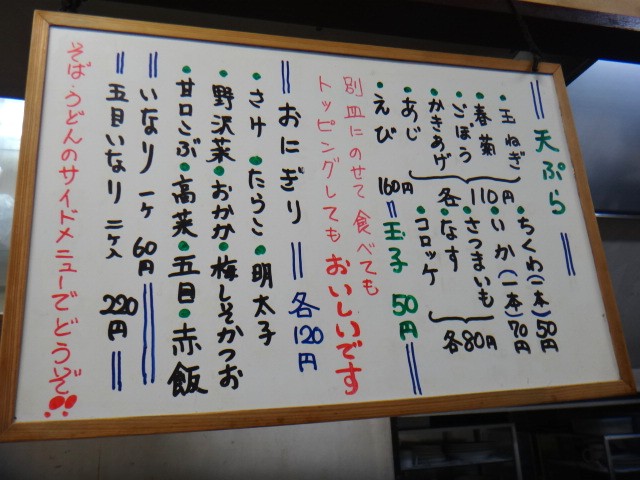 天ぷら
・玉ねぎ
・春菊
・ごぼう
・かきあげ
各110円
・あじ
・えび 160円
・ちくわ(一本)50円
・いか(一本)70円
・さつまいも
・なす
・コロッケ
各80円
玉子 50円
別皿にのせて食べても
トッピングしてもおいしいです
おにぎり 各120円
・さけ・たらこ・明太子
・野沢菜・おかか・梅しそかつお
・甘口こぶ・高菜・五目・赤飯
いなり 一ケ 60円
五目いなり 二ケ入 220円
そば・うどんのサイドメニューでどうぞ!!